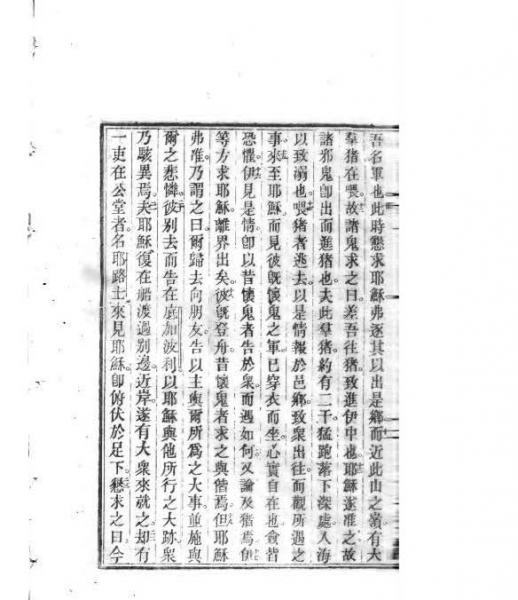 吾名軍也此時懇求耶穌弗逐其以出是鄉而近此山之嶺有大
羣猪在喂故諸鬼求之曰差吾往猪致進伊中也耶穌遂准之故
諸邪鬼卽出而進猪也夫此羣猪約有二千猛跑落下深處入海
以致溺也喂猪者逃去以是情報於邑鄉致衆出往而觀所遇之
事來至耶穌而見彼旣懷鬼之軍已穿衣而坐心實自在也僉皆
恐懼伊見是情卽以昔懷鬼者告於衆而遇如何又論及猪焉伊
等方求耶穌離界出矣彼旣登舟昔懷鬼者求之與偕焉但耶穌
弗准乃謂之曰爾歸去向朋友告以主與爾所爲之大事並施與
爾之悲憐彼別去而告在底加波利以耶穌與他所行之大跡衆
乃駭異焉夫耶穌復在船渡過別邊近岸遂有大衆來就之却有
一吏在公堂者名耶路士來見耶穌卽俯伏於足下懇求之曰今